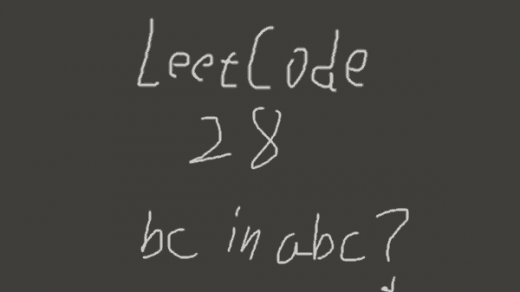 LeetCode
28
bc in abc?